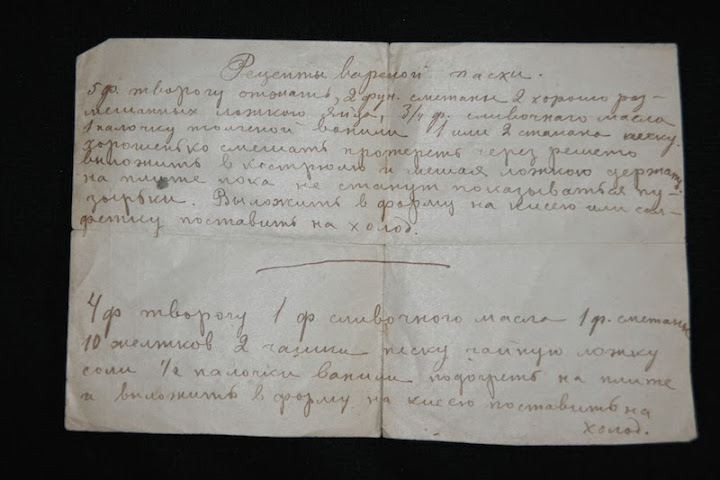 Рецепты вареной пасхи.
5 ф. творогу отжать, 2 фун. сметаны 2 хорошо раз-
мешанных ложкою яйца, 3/4 ф. сливочного масла
1 палочку толченой ванили 1 или 2 стакана песку.
хорошенько смешать протереть через решето
выложить в кострюлю и мешая ложкою держать
на плите пока не станут показываться пу-
зырьки. Выложить в форму на кисею или сал-
фетку поставить на холод.
4 ф творогу 1 ф сливочного масла 1 ф. сметаны
10 желтков 2 чашки песку чайную ложку
соли 1/2 палочки ванили подогреть на плите
и выложить в форму на кисею поставить на
холод.